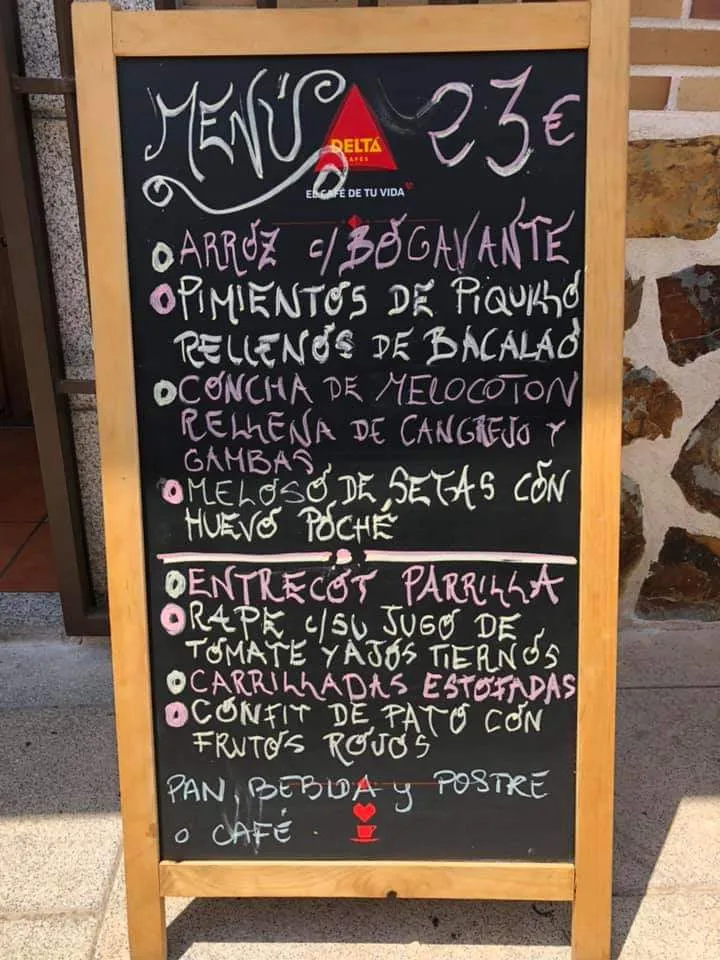 MENÚ 23€
DELTA
CAFÉS
EL CAFÉ DE TU VIDA
ARROZ c/BOGAVANTE
PIMIENTOS DE PIQUILLO
RELLENOS DE BACALAO
CONCHA DE MELOCOTON
RELLENA DE CANGREJO Y
GAMBAS
MELOSO DE SETAS CON
HUEVO POCHÉ
ENTRECOT PARRILLA
RAPE c/SU JUGO DE
TOMATE Y AJOS TIERNOS
CARRILLADAS ESTOFADAS
CONFIT DE PATO CON
FRUTOS ROJOS
PAN, BEBIDA y POSTRE
o CAFÉ